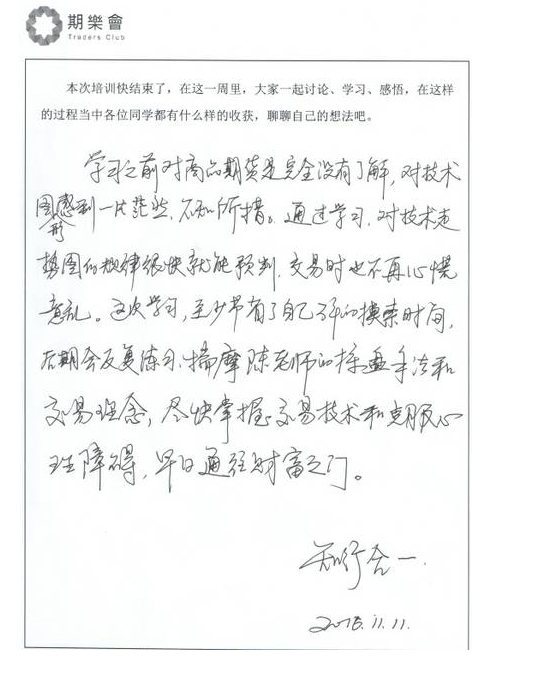 期樂會
Traders Club
本次培训快结束了，在这一周里，大家一起讨论、学习、感悟，在这样
的过程当中各位同学都有什么样的收获，聊聊自己的想法吧。
学习之前对商品期货是完全没有了解，对技术
图形感到一片茫然，不知所措。通过学习，对技术走
势图的规律很快就能预判，交易时也不再心慌
意乱。这次学习，至少节省了自己的摸索时间，
后期会反复练习、揣摩陈老师的操盘手法和
交易理念，尽快掌握交易技术和克服心
理障碍，早日通往财富之门。
知行合一.
2018.11.11.